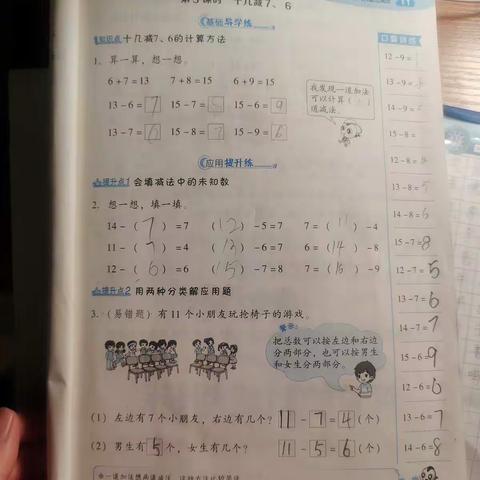 第3课时 十几减7、6
基础导学练
知识点 十几减7、6的计算方法
1. 算一算,想一想。
6+7=13 7+8=15 6+9=15
13-6=7 15-7=8 15-6=9
13-7=6 15-8=7 15-9=6
我发现一道加法
可以计算( )
道减法。
应用提升练
提升点1 会填减法中的未知数
2. 想一想,填一填。
14-(7)=7 (12)-5=7 7=(11)-4
11-(7)=4 (13)-6=7 6=(14)-8
12-(6)=6 (15)-7=8 7=(16)-9
提升点2 用两种分类解应用题
3.(易错题)有11个小朋友玩抢椅子的游戏。
警示:
把总数可以按左边和右边
分两部分,也可以按男生
和女生分两部分。
(1)左边有7个小朋友,右边有几个? 11-7=4(个)
(2)男生有5个,女生有几个? 11-5=6(个)
口算训练
12-9=
13-9=
14-9=
15-8=
12-8=
13-8=5
14-8=6
15-7=8
12-7=5
13-7=6
14-7=7
15-6=9
12-6=6
13-6=7
14-6=8